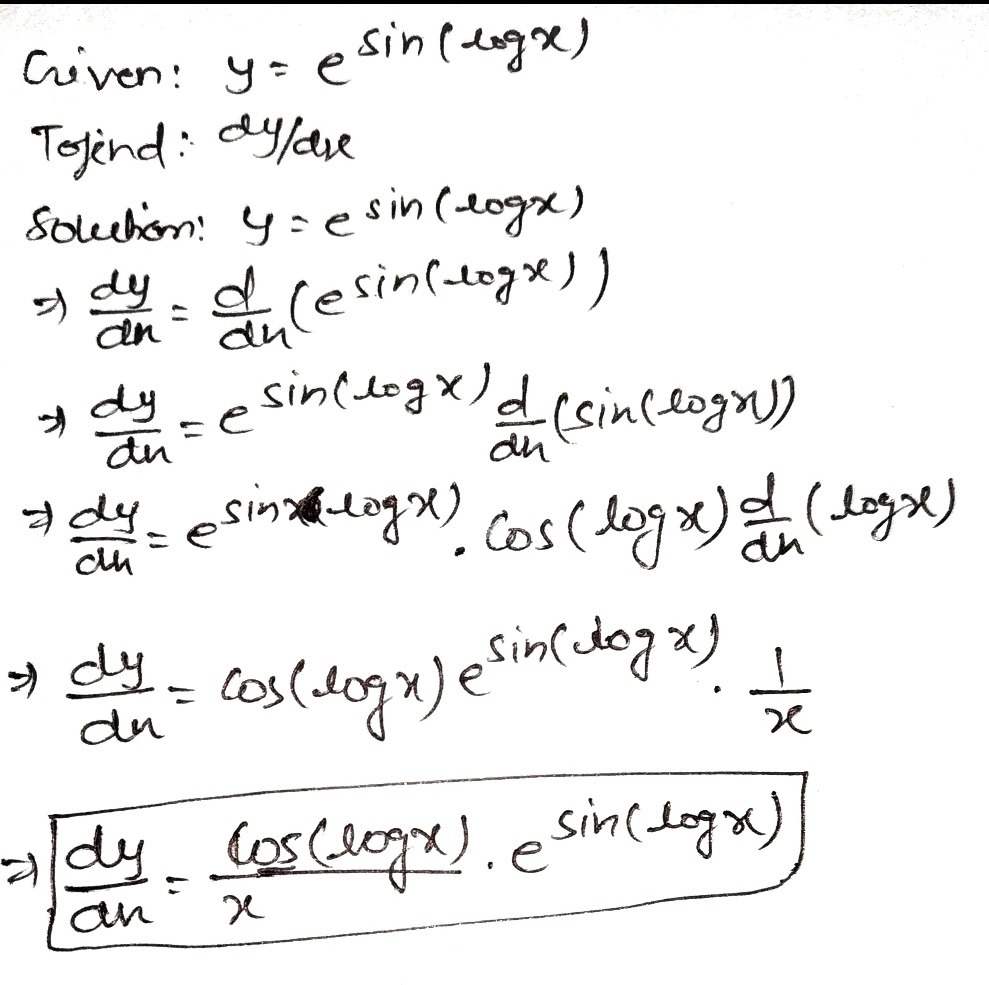 Given: y = e^sin(logx)
To find: dy/dx
Solution: y = e^sin(logx)
⇒ dy/dx = d/dx (e^sin(logx))
⇒ dy/dx = e^sin(logx) d/dx (sin(logx))
⇒ dy/dx = e^sin(logx) . Cos(logx) d/dx (logx)
⇒ dy/dx = Cos(logx) e^sin(logx) . 1/x
⇒ dy/dx = Cos(logx)/x . e^sin(logx)